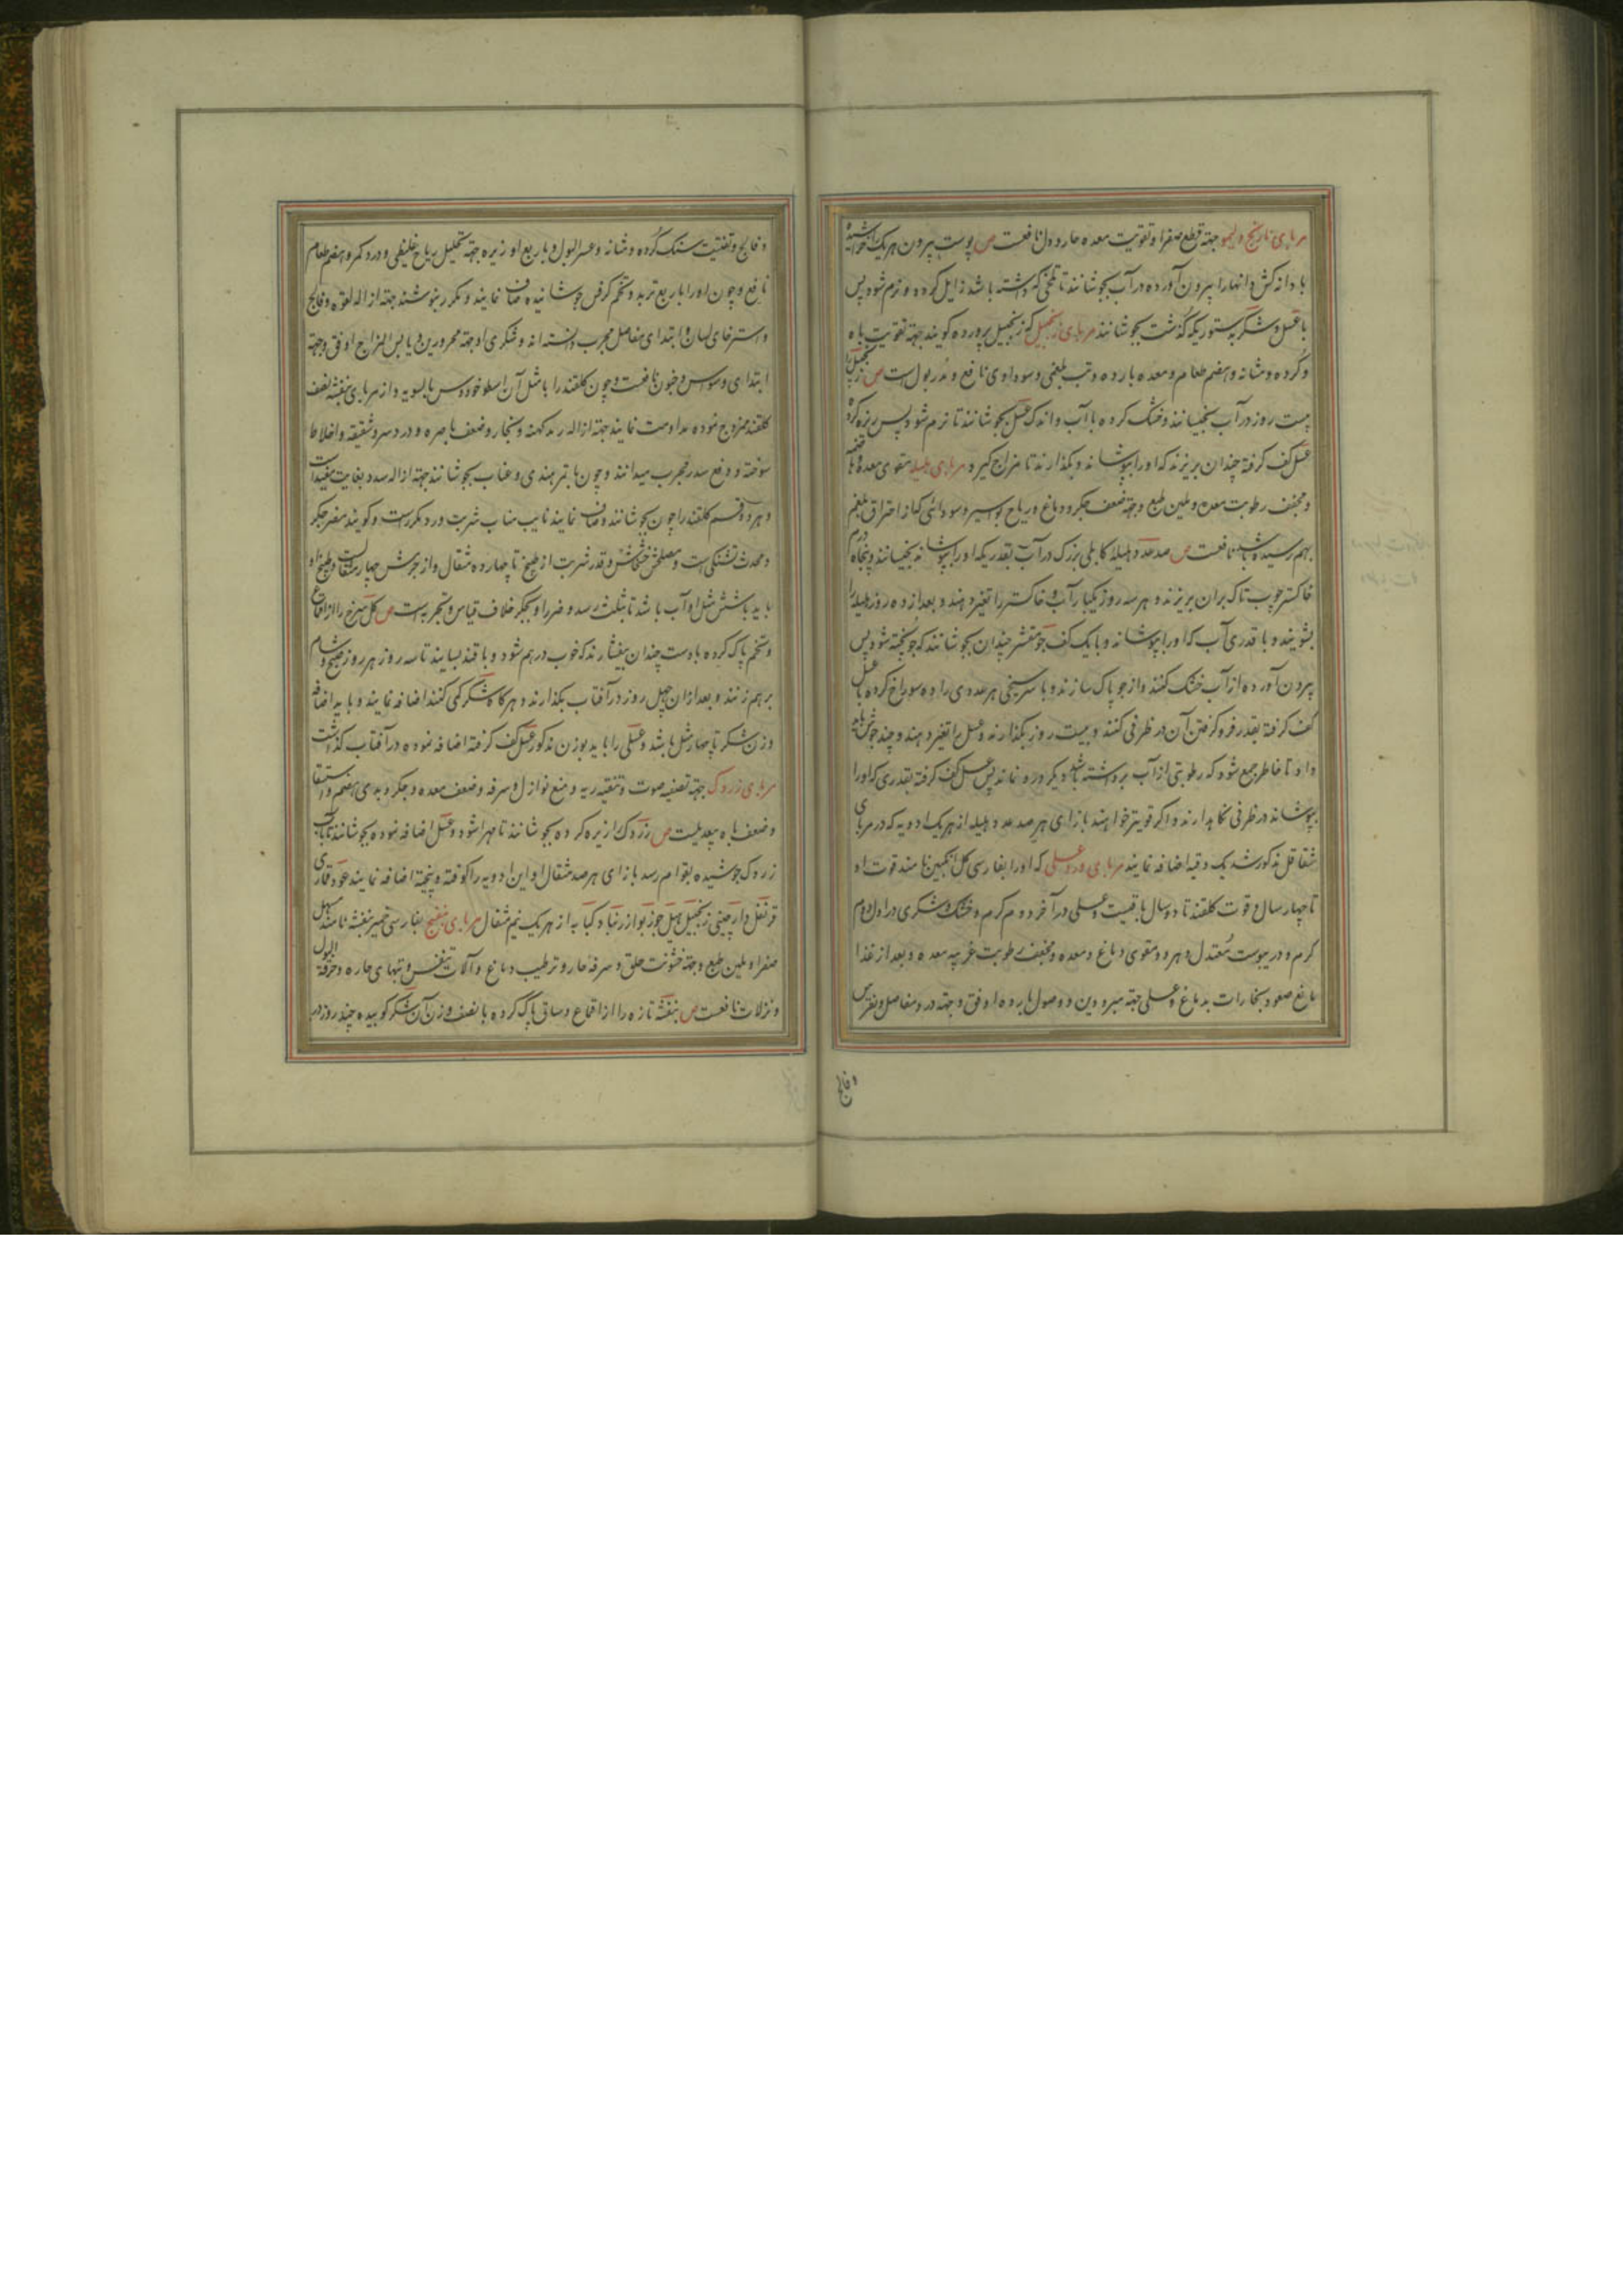 مربای نارنج و لیمو جهته قطع صفرا و تقویت معده حاره و دل نافعست ص پوست بیرون هریک را خراشیده
با دانه کش و انها را بیرون آورده در آب بجوشانند تا تلخی که داشته باشد زایل کردد و نرم شود پس
با عسل و شکر بدستوریکه گذشت بجوشانند مربای زنجبیل که زنجبیل پرورده کویند جهته تقویت باه
و کرده و مثانه و هضم طعام و معده بارده و تب بلغمی و سوداوی نافع و مدر بول است ص زنجبیل را
بیست روز در آب بخیسانند و خشک کرده با آب و اندک عسل بجوشانند تا نرم شود پس ریزه کرده
عسل کف کرفته چندان بریزند که او را بپوشاند و بکذارند تا مزاج کیرد مربای هلیله مقوی معده و هاضمه
و مجفف رطوبت معده و ملین طبع و جهته ضعف جکر و دماغ و ریاح بواسیر و سودائی که از احتراق بلغم
بهم رسیده باشد نافعست ص صد عدد هلیله کابلی بزرک در آب بقدریکه او را بپوشاند بخیسانند و پنجاه درم
خاکستر چوب تاک بران بریزند و هر سه روز یکبار آب و خاکستر را تغیر دهند و بعد از ده روز هلیله را
بشویند و با قدری آب که او را بپوشاند و با یک کف جو مقشر چندان بجوشانند که جو پخته شود پس
بیرون آورده از آب خشک کنند و از جو پاک سازند و با سر سیخی هر عددی را ده سوراخ کرده با عسل
کف کرفته بقدر فرو کرفتن آن در ظرفی کنند و بیست روز بکذارند و عسل را تغیر دهند و چند جوش باید
داد تا خاطر جمع شود که رطوبتی از آب برداشته باشد دیکر درو نماند پس عسل کف کرفته بقدری که او را
بپوشاند در ظرفی نکاهدارند و اکر قویتر خواهند بازای هر صد عدد هلیله از هر یک ادویه که در مربای
شقاقل مذکور شد یک وقیه اضافه نمایند مربای ورد عسلی که او را بفارسی کل انکبین نامند قوت او
تا چهار سال و قوت کلقند تا دو سال باقیست و عسلی در آخر دوم کرم و خشک و شکری در اول دوم
کرم و در یبوست معتدل و هر دو مقوی دماغ و معده و مجفف رطوبت غریبه معده و بعد از غذا
مانع صعود بخارات بدماغ و عسلی جهته مبرودین و فصول بارده اوفق و جهته درد مفاصل و نقرس
و فالج
و فالج و تفتیت سنک کرده و مثانه و عسر البول و با ربع او زیره جهته تحلیل ریاح غلیظی و درد کمر و هضم طعام
نافع و چون او را با ربع تربد و تخم کرفس جوشانیده صاف نمایند و مکرر بنوشند جهته ازاله لقوه و فالج
و استرخای لسان و ابتدای مفاصل مجرب دانسته اند و شکری او جهته محرورین و یابس المزاج اوفق و جهته
ابتدای وسواس و جنون نافعست و چون کلقند را با مثل آن اسطوخودوس بالسویه و از مربای بنفشه نصف
کلقند ممزوج نموده مداومت نمایند جهته ازاله رمد کهنه و بخار و ضعف باصره و درد سر و شقیقه و اخلاط
سوخته و دفع سدر مجرب میدانند و چون با تمر هندی و عناب بجوشانند جهته ازاله سدد بغایت مفید است
و هر دو قسم کلقند را چون بجوشانند و صاف نمایند نایب مناب شربت ورد مکرر است و کویند مضر جکر
و محدث تشنکی است و مصلحش خشخاش و قدر شربت از طبیخ تا چهارده مثقال و از جرمش چهار مثقالست و طبیخ او
باید با شش مثل او آب باشد تا بثلث رسد و ضرر او بجکر خلاف قیاس و تجربه است ص کل سرخ را از اقماع
و تخم پاک کرده با دست چندان بیفشارند که خوب درهم شود و با قند بسایند تا سه روز هر روز صبح و شام
برهم زنند و بعد ازان چهل روز در آفتاب بکذارند و هرکاه شکر کمی کند اضافه نمایند و باید اضافه
وزن شکر تا چهار مثل باشد و عسلی را باید بوزن مذکور عسل کف کرفته اضافه نموده در آفتاب کذاشت
مربای زردک جهته تصفیه صوت و تنقیه ریه و منع نوازل و سرفه و ضعف معده و جکر و بدی هضم و استسقا
و ضعف باه بیعدیلست ص زردک را ریزه کرده بجوشانند تا مهرا شود و عسل اضافه نموده بجوشانند تا آب
زردک جوشیده بقوام رسد بازای هر صد مثقال او این ادویه را کوفته و بیخته اضافه نمایند عود قماری
قرنفل دارچینی زنجبیل هیل جوزبوا زرنباد کبابه از هر یک نیم مثقال مربای بنفسج بفارسی خمیر بنفشه نامند مسهل
صفرا و ملین طبع و جهته خشونت حلق و سرفه حار و ترطیب دماغ و آلات تنفس و تبهای حاره و حرقة البول
و نزلات نافعست ص بنفشه تازه را از اقماع و ساق پاک کرده با نصف وزن آن شکر کوبیده چند روز در